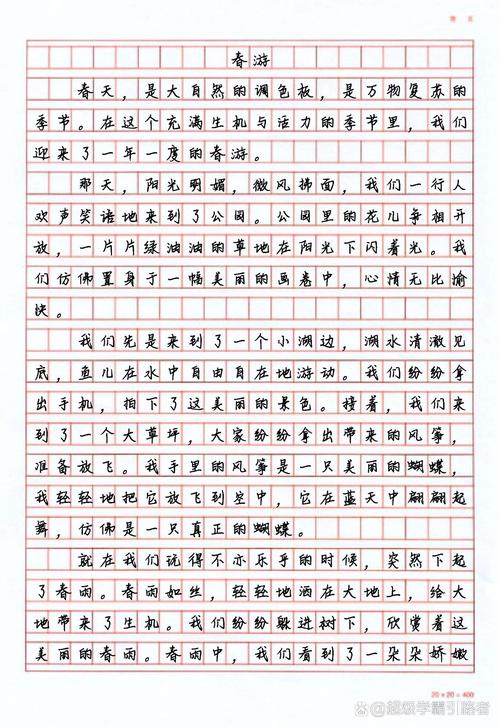 第 页
春游
春天，是大自然的调色板，是万物复苏的
季节。在这个充满生机与活力的季节里，我们
迎来了一年一度的春游。
那天，阳光明媚，微风拂面，我们一行人
欢声笑语地来到了公园。公园里的花儿争相开
放，一片片绿油油的草地在阳光下闪着光。我
们仿佛置身于一幅美丽的画卷中，心情无比愉
快。
我们先是来到了一个小湖边，湖水清澈见
底，鱼儿在水中自由自在地游动。我们纷纷拿
出手机，拍下了这美丽的景色。接着，我们来
到了一个大草坪，大家纷纷拿出带来的风筝，
准备放飞。我手里的风筝是一只美丽的蝴蝶，
我轻轻地把它放飞到空中，它在蓝天中翩翩起
舞，仿佛是一只真正的蝴蝶。
就在我们玩得不亦乐乎的时候，突然下起
了春雨。春雨如丝，轻轻地洒在大地上，给大
地带来了生机。我们纷纷躲进树下，欣赏着这
美丽的春雨。春雨中，我们看到了一朵朵娇嫩
20×20=400
@超级学霸引路者